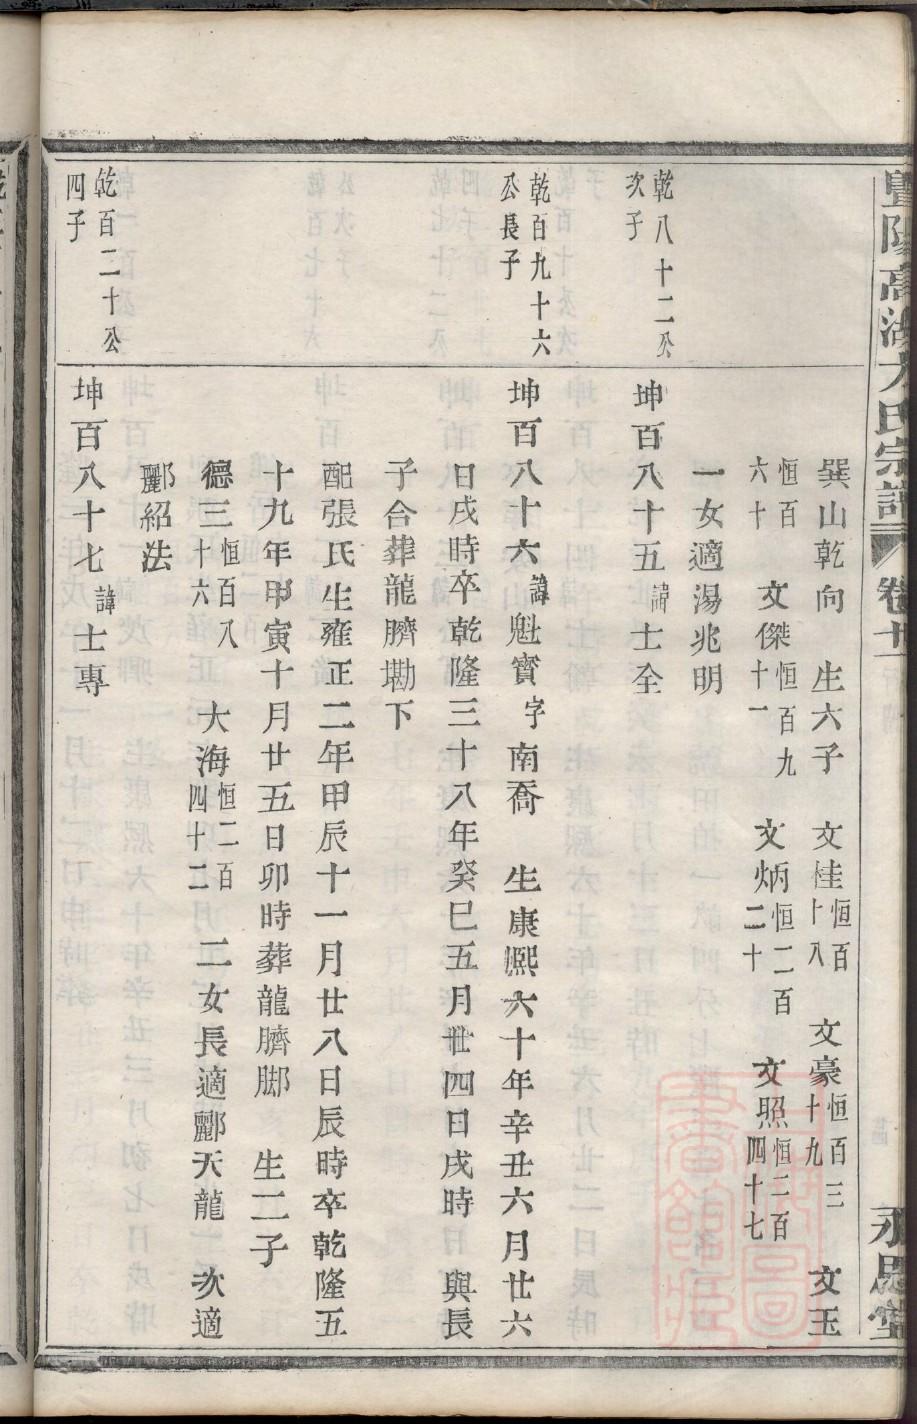 暨陽高湖方氏宗譜 卷十二 永思堂
巽山乾向 生六子 文桂恒百十八 文豪恒百三十九 文玉
恒百六十 文傑恒百九十一 文炳恒二百二十 文照恒二百四十七
一女適湯兆明
乾八十二公次子
坤百八十五諱士全
乾百九十六公長子
坤百八十六諱魁寳字南喬 生康熙六十年辛丑六月廿六
日戌時卒乾隆三十八年癸巳五月廿四日戌時 與長
子合葬龍臍墈下
配張氏生雍正二年甲辰十一月廿八日辰時卒乾隆五
十九年甲寅十月廿五日卯時葬龍臍脚 生二子
德三恒百八十六 大海恒二百四十二 二女長適酈天龍次適
酈紹法
乾百二十公四子
坤百八十七諱士專